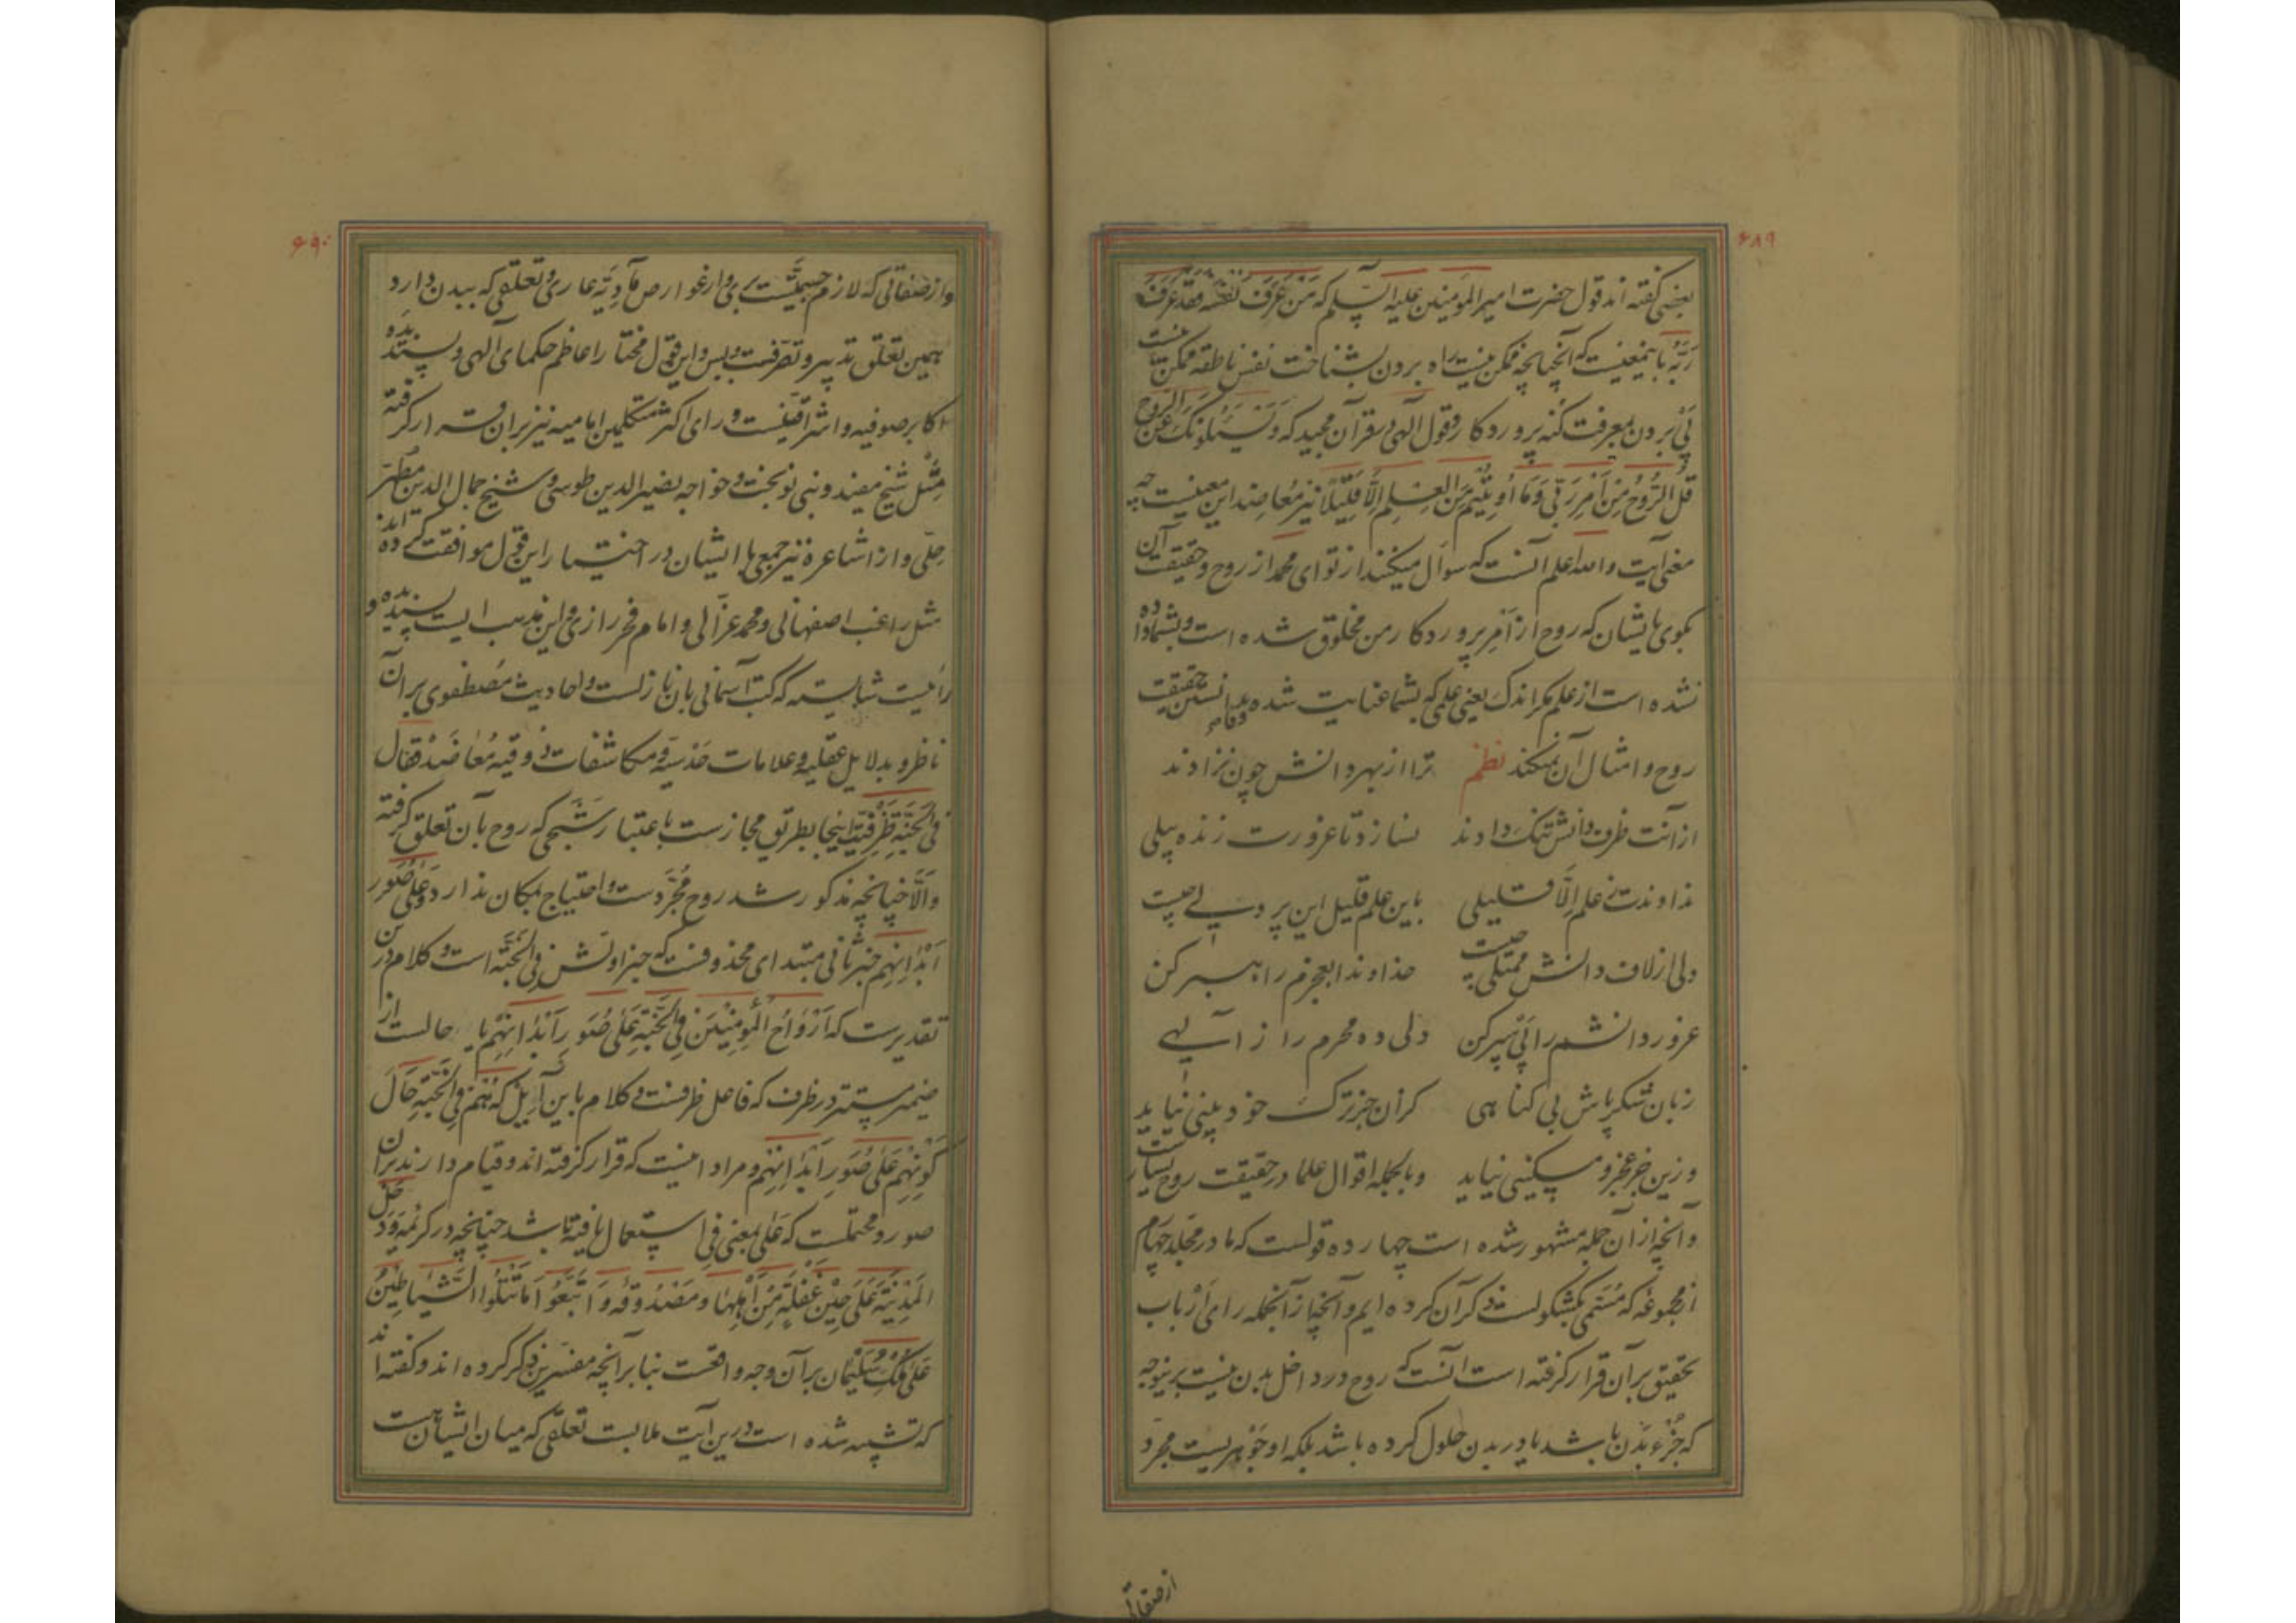 ۶۸۹
بعضی گفته اند قول حضرت امیرالمؤمنین علیه السلم که مَنْ عَرَفَ نَفْسَهُ فَقَدْ عَرَفَ
رَبَّهُ باینمعنیست که آنچنانچه ممکن نیست راه بردن بشناخت نفس ناطقه ممکن نیست
پَیْ بردن بمعرفت کُنه پروردکار و قول آلهی در قرآن مجید که وَیَسْئَلُونَکَ عَنِ الرُّوحِ
قُلِ الرُّوحُ مِنْ اَمْرِ رَبّی وَمَا اُوتِیْتُمْ مِنَ الْعِلْمِ اِلَّا قَلِیْلًا نیز مُعاضد این معنیست چه
معنی آیت والله اعلم آنست که سوآل میکنند از تو ای محمد از روح و حقیقت آن
بکوی بایشان که روح از اَمرِ پروردکار من مخلوق شده است و بشما داده
نشده است از علم مکر اندک یعنی علمی که بشما عنایت شده وفا بدانستن حقیقت
روح و امثال آن نمیکند نظم ترا از بهر دانش چون نزادند
از آنت ظرف دانش تنک دادند نسازد تا غرورت زنده پیلی
ندادندت ز علم اِلَّا قلیلی باین علم قلیل این پر دلی چیست
ولی از لاف دانش ممتلی چیست خداوندا بعجزم راهبر کن
غرور دانشم را پَیْ سپر کن دلی ده محرم راز آلهی
زبان شکر پاش بی کناهی کزان جز ترک خود بینی نیاید
وزین جز عجز و مسکینی نیاید وبالجمله اقوال علما در حقیقت روح بسیارست
وآنچه از آن جمله مشهور شده است چهارده قولست که ما در مجلد چهارم
از مجموعه که مُسَمّی بکشکولست ذکر آن کرده ایم و آنچه از آنجمله رای اَرْباب
تحقیق برآن قرار کرفته است آنست که روح در داخل بدن نیست برینوجه
که جُزْء بَدَن باشد یا در بدن حلول کرده باشد بلکه او جَوْهریست مجرد
از صفاتی
۶۹۰
و از صفاتی که لازم جسمیّتست بری و از عوارض مآدِیَّه عاری و تعلقی که ببدن دارد
همین تعلق تدبیر و تصرفست و بس و این قول مختار اعاظم حکمای آلهی و پسندیده
اکابر صوفیه و اشراقینست و رای اکثر متکلمین امامیه نیز بر ان قرار کرفته
مِثل شیخ مفید و بنی نوبخت و خواجه نصیرالدین طوسی و شیخ جمال الدین مُطَهَّر
حِلّی و از اشاعره نیز جمعی با ایشان در اختیار این قول موافقت کرده اند
مثل راغب اصفهانی و محمد غزالی و امام فخر رازی و این مذهب ایست پسندیده و
رائیست شایسته که کتب آسمانی بان نازلست و احادیث مُصطفوی بر آن
ناظر و بدلایل عقلیه و علامات حَدْسیّه و مکاشفات ذوقیه مُعاضَدْ فقال
فی الجَنَّهِ ظرفیّت اینجا بطریق مجازست باعتبار شَبَحی که روح بآن تعلق کرفته
واَلَّا چنانچه مذکور شد روح مُجَرَّدست و احتیاج بمکان ندارد وَعَلی صُوَر
اَبْدَانِهِم خبر ثانی مبتدای محذوفست که خبر اولش فِی الْجَنَّه است و کلام درین
تقدیرست که اَرْوَاحُ الْمُؤمِنِیْنَ فِی الْجَنَّهِ عَلی صُوَرِ اَبْدَانِهِمْ یا حالست از
ضمیر مستتر در ظرف که فاعل ظرفست و کلام باین آیِل که هُمْ فِی الْجَنَّهِ حَالَ
کَوْنِهِمْ عَلَی صُوَرِ اَبْدَانِهِمْ و مراد اینست که قرار کرفته اند و قیام دارند بران
صور و محتملست که عَلی بمعنی فِی استعمال یافته باشد چنانچه در کریمهٔ وَدَخَلَ
الْمَدِیْنَهَ عَلَی حِیْنِ غَفْلَهٍ مِنْ اَهْلِهَا و مَصْدُوقهٔ وَاتَّبَعُوا مَا تَتْلُوا الشَّیَاطِیْنُ
عَلَی مُلْکِ سُلَیْمَان بر آن وجه واقعست بنا بر آنچه مفسّرین ذکر کرده اند و کفته اند
که تشبیه شده است درین آیت ملابست تعلقی که میان ایشانست